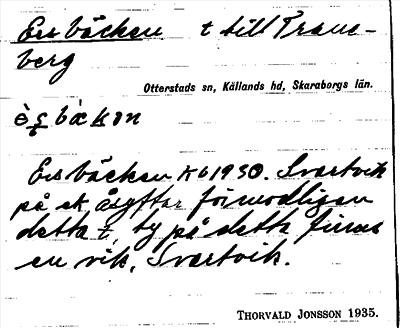 Esbäcken t till Trane-
berg
Otterstads sn, Kållands hd, Skaraborgs län.
Esbäcken K61930. Svartvik
på ek åsyftar förmodligen
detta t, ty på detta finnes
en vik, Svartvik.
THORVALD JONSSON 1935.